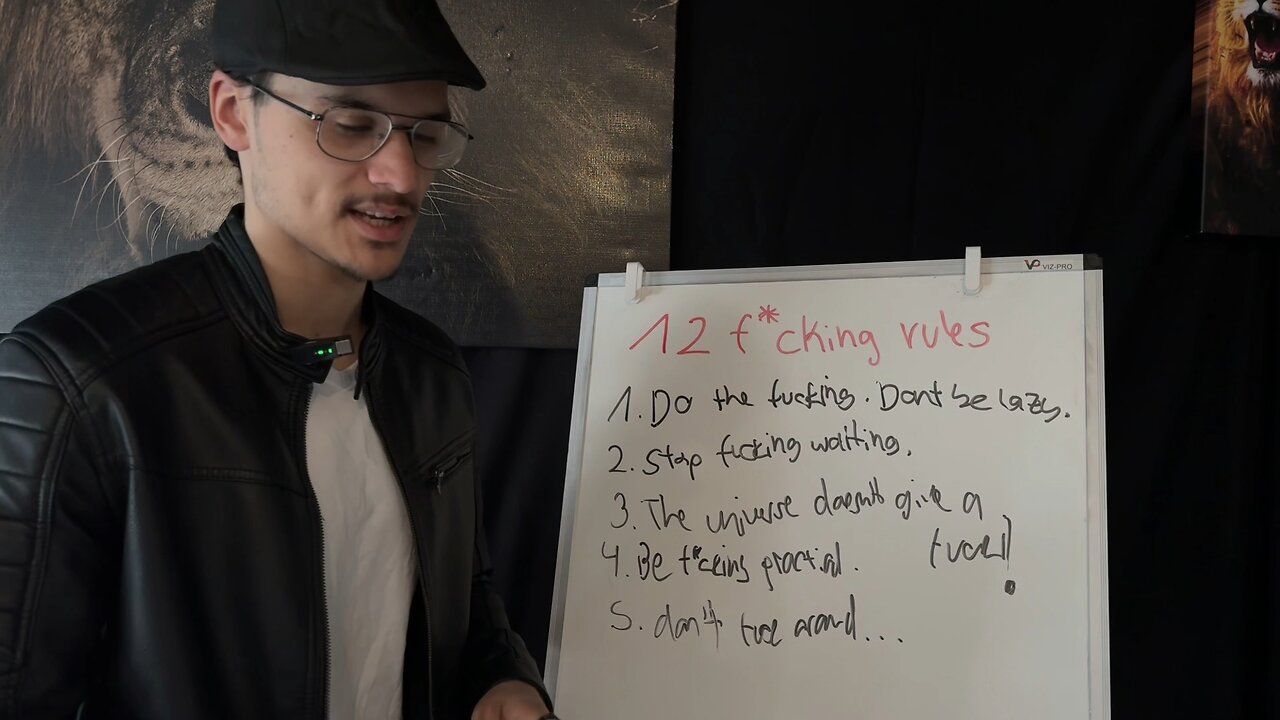 VP VIZ-PRO
12 f*cking rules
1. Do the fucking. Dont be lazy.
2. Stop fucking waiting.
3. The universe doesn't give a
fuck!
4. Be f*cking practial.
5. don't fuck around...